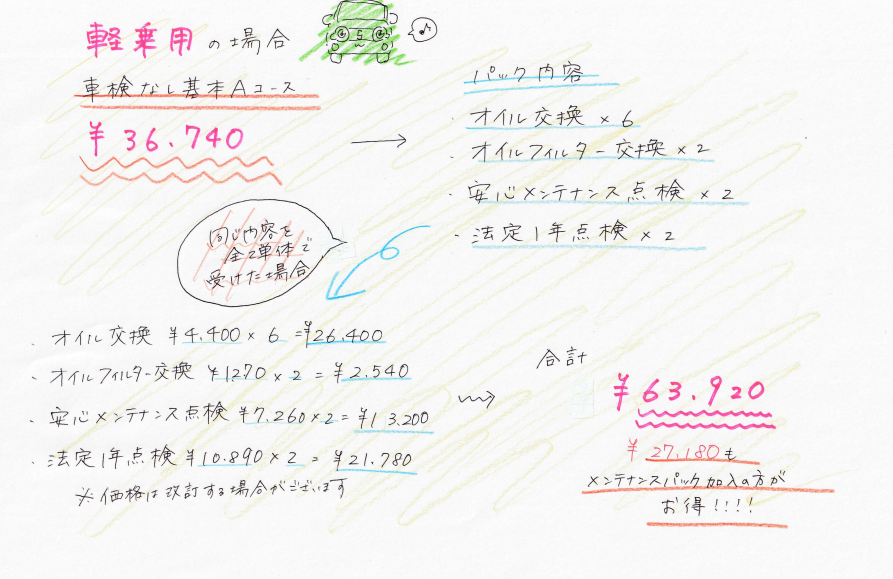 軽乗用の場合
車検なし基本Aコース
¥36.740
パック内容
・オイル交換×6
・オイルフィルター交換×2
・安心メンテナンス点検×2
・法定1年点検×2
同じ内容を
全て単体で
受けた場合
・オイル交換 ¥4.400×6=¥26.400
・オイルフィルター交換 ¥1270×2=¥2.540
・安心メンテナンス点検 ¥7.260×2=¥13.200
・法定1年点検 ¥10.890×2=¥21.780
※価格は改訂する場合がございます
合計
¥63.920
¥27.180も
メンテナンスパック加入の方が
お得!!!!